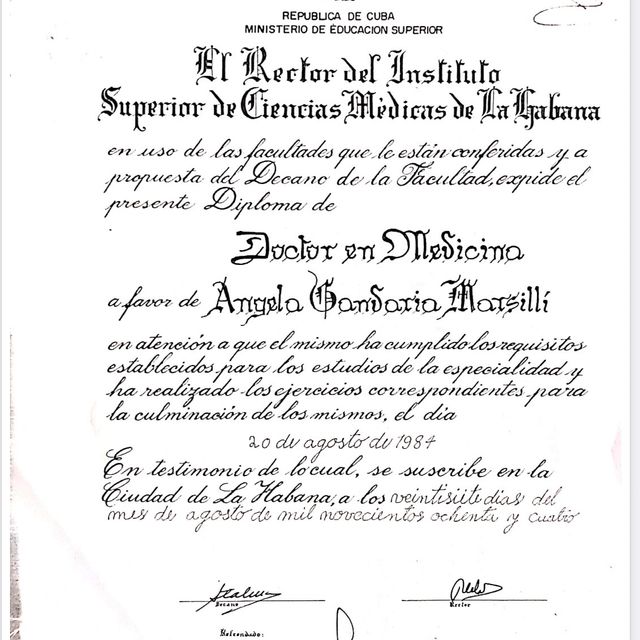 REPUBLICA DE CUBA
MINISTERIO DE EDUCACION SUPERIOR
El Rector del Instituto
Superior de Ciencias Médicas de La Habana
en uso de las facultades que le están conferidas y a
propuesta del Decano de la Facultad, expide el
presente Diploma de
Doctor en Medicina
a favor de Angela Gandaria Marsillí
en atención a que el mismo ha cumplido los requisitos
establecidos para los estudios de la especialidad y
ha realizado los ejercicios correspondientes para
la culminación de los mismos, el día
20 de agosto de 1984
En testimonio de lo cual, se suscribe en la
Ciudad de La Habana, a los veintisiete días del
mes de agosto de mil novecientos ochenta y cuatro
Decano
Rector
Refrendado: